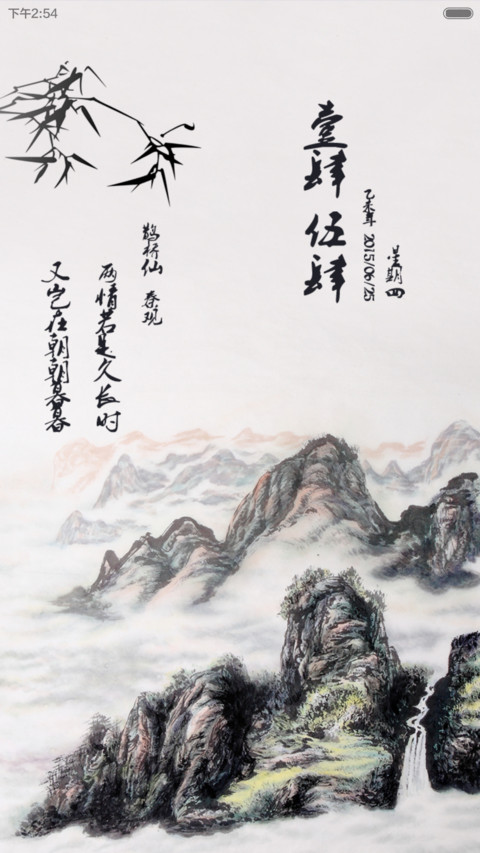 下午2:54
壹肆
伍肆
乙未年 2015/06/25
星期四
鹊桥仙 秦观
两情若是久长时
又岂在朝朝暮暮